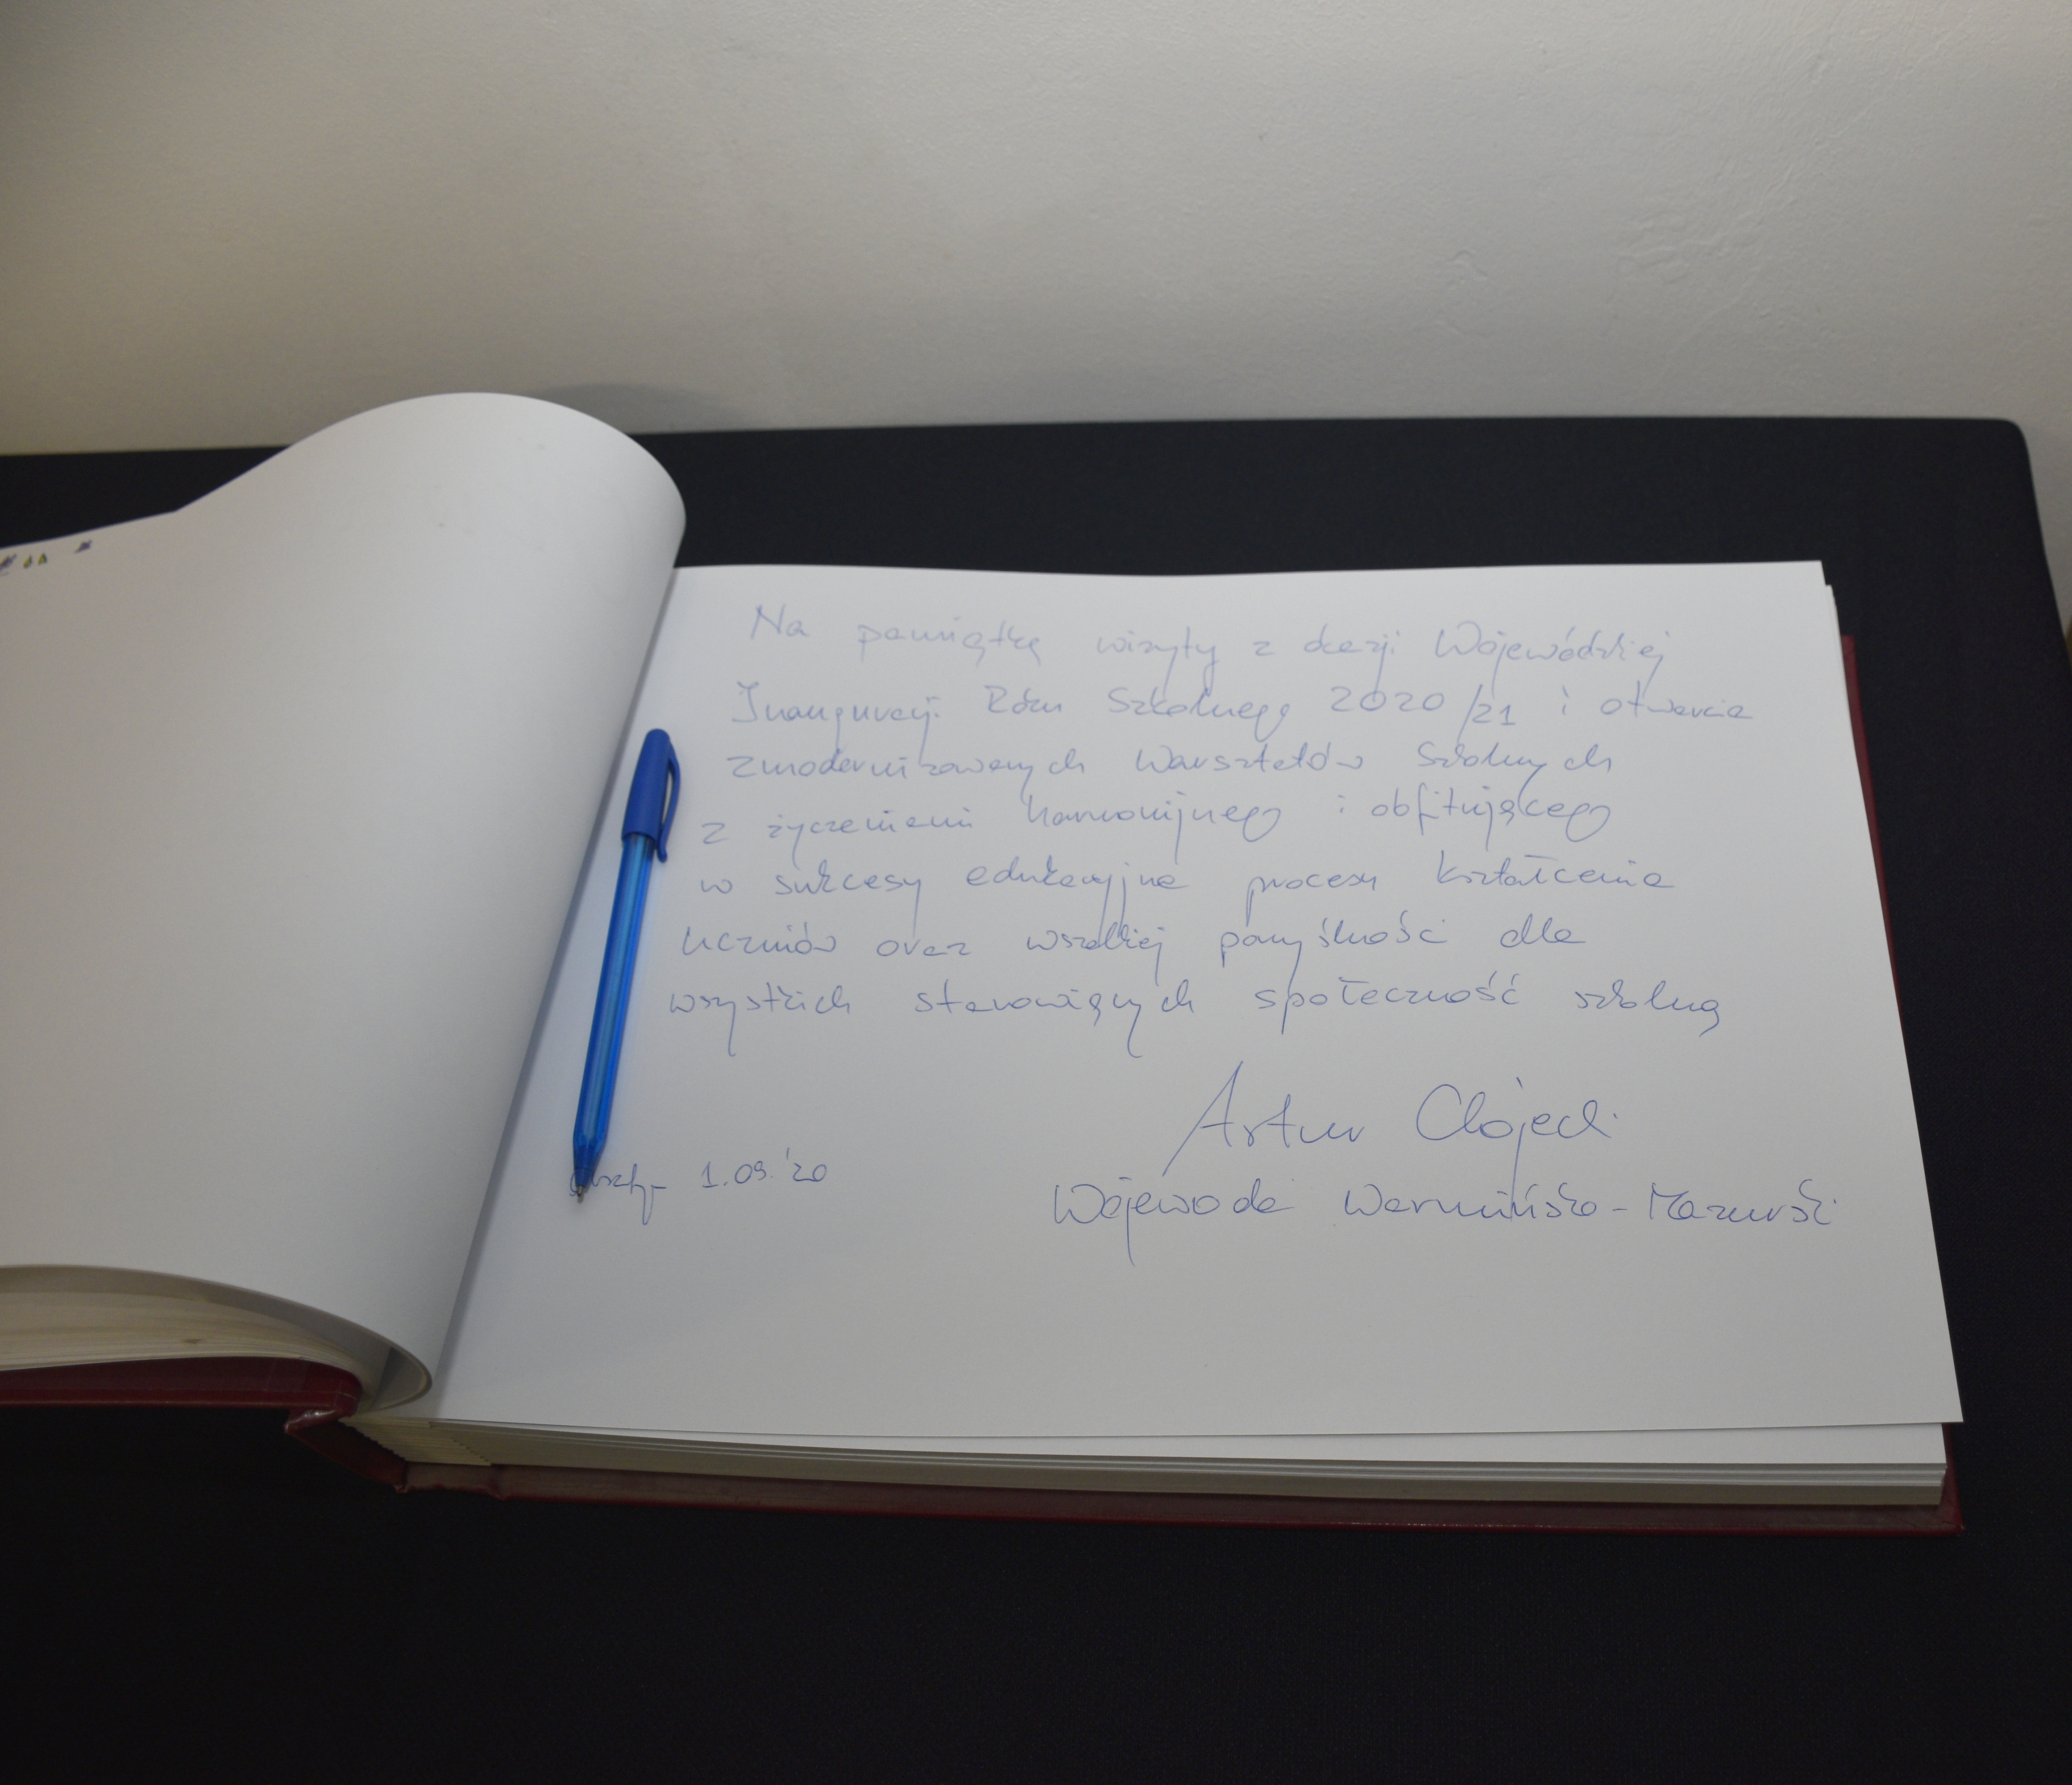 Na pamiątkę wizyty z okazji Wojewódzkiej
Inauguracji Roku Szkolnego 2020/21 i otwarcia
zmodernizowanych Warsztatów Szkolnych
z życzeniami harmonijnego i obfitującego
w sukcesy edukacyjne procesu kształcenia
uczniów oraz wszelkiej pomyślności dla
wszystkich stanowiących społeczność szkolną
Artur Chojecki
1.09.'20
Wojewoda Warmińsko-Mazurski